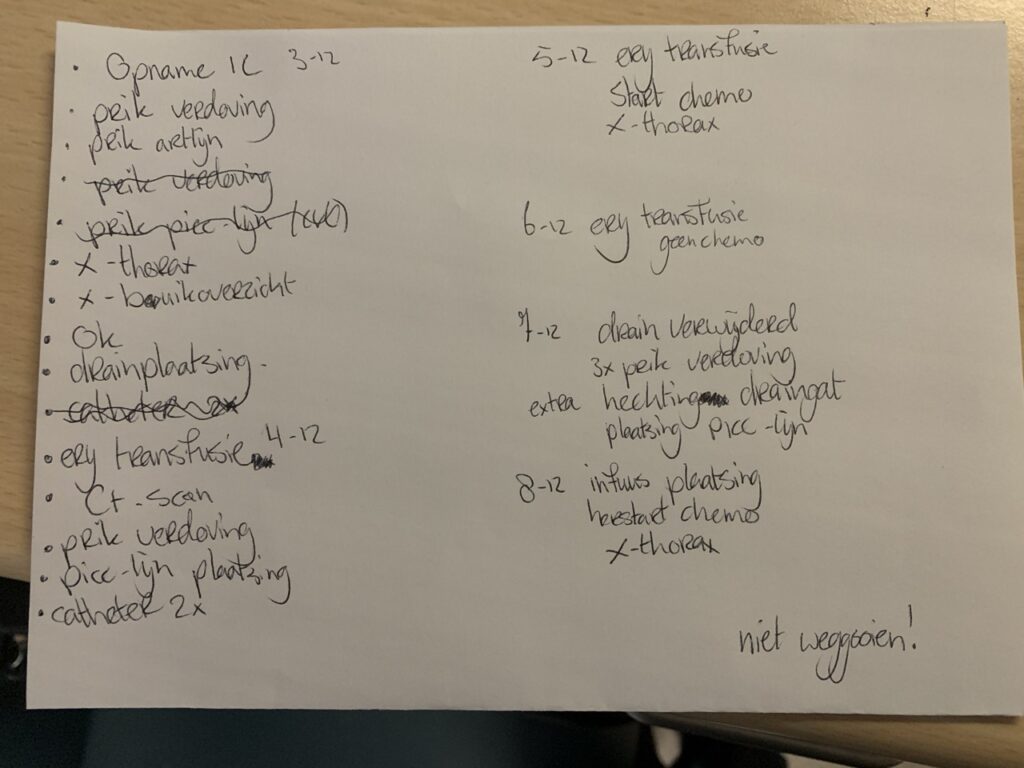 • Opname IC 3-12
• prik verdoving
• prik artlijn
• prik verdoving
• prik picc-lijn (cvl)
• X-thorax
• X-buikoverzicht
• Ok
• drainplaatsing.
• catheter 2x
• ery transfusie 4-12
• Ct-scan
• prik verdoving
• picc-lijn plaatsing
• catheter 2x
5-12 ery transfusie
Start chemo
X-thorax
6-12 ery transfusie
geen chemo
7-12 drain verwijderd
3x prik verdoving
extra hechting draingat
plaatsing picc-lijn
8-12 infuus plaatsing
herstart chemo
X-thorax
niet weggooien!